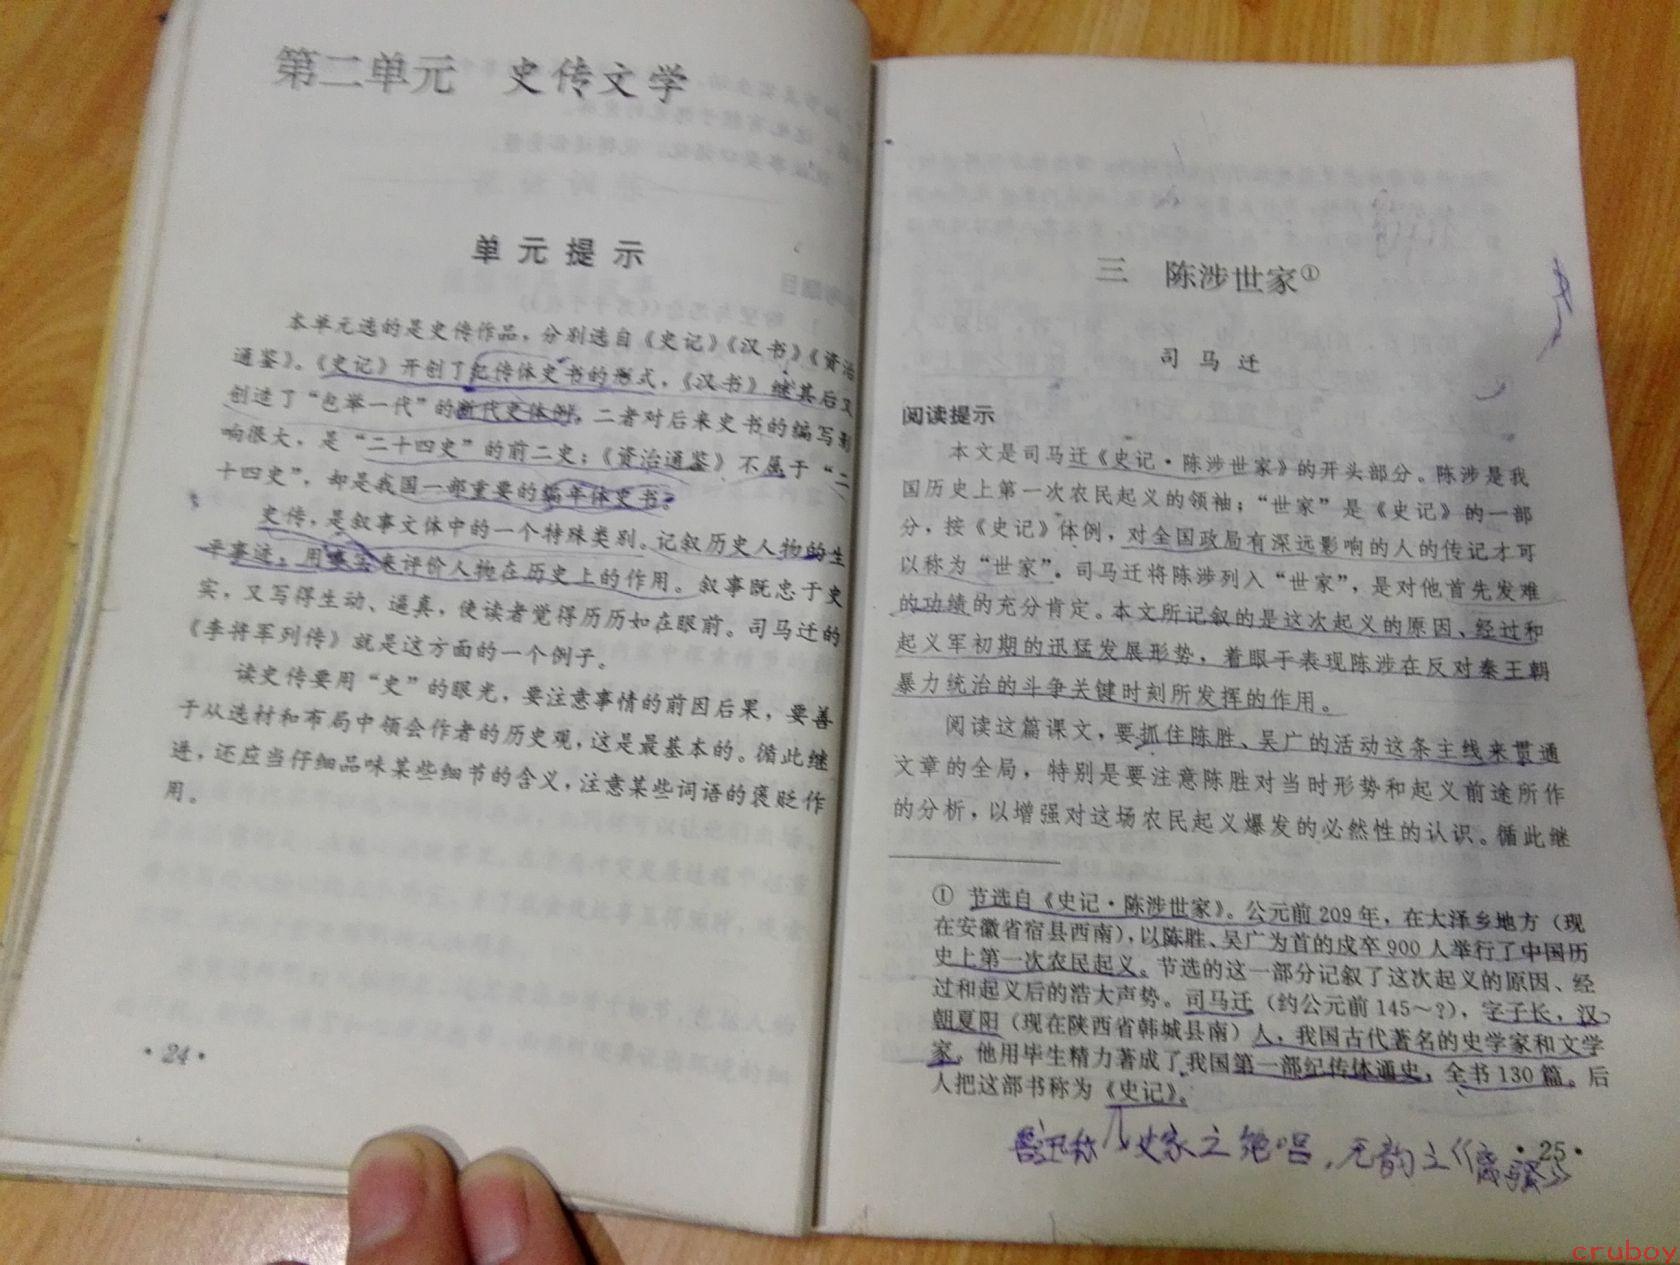 第二单元 史传文学
单元提示
本单元选的是史传作品，分别选自《史记》《汉书》《资治
通鉴》。《史记》开创了纪传体史书的形式，《汉书》继其后又
创造了“包举一代”的断代史体例。二者对后来史书的编写影
响很大，是“二十四史”的前二史；《资治通鉴》不属于“二
十四史”，却是我国一部重要的编年体史书。
史传，是叙事文体中的一个特殊类别。记叙历史人物的生
平事迹，用事实来评价人物在历史上的作用。叙事既忠于史
实，又写得生动、逼真，使读者觉得历历如在眼前。司马迁的
《李将军列传》就是这方面的一个例子。
读史传要用“史”的眼光，要注意事情的前因后果，要善
于从选材和布局中领会作者的历史观，这是最基本的。循此继
进，还应当仔细品味某些细节的含义，注意某些词语的褒贬作
用。
·24·
三 陈涉世家①
司马迁
阅读提示
本文是司马迁《史记·陈涉世家》的开头部分。陈涉是我
国历史上第一次农民起义的领袖；“世家”是《史记》的一部
分，按《史记》体例，对全国政局有深远影响的人的传记才可
以称为“世家”。司马迁将陈涉列入“世家”，是对他首先发难
的功绩的充分肯定。本文所记叙的是这次起义的原因、经过和
起义军初期的迅猛发展形势，着眼于表现陈涉在反对秦王朝
暴力统治的斗争关键时刻所发挥的作用。
阅读这篇课文，要抓住陈胜、吴广的活动这条主线来贯通
文章的全局，特别是要注意陈胜对当时形势和起义前途所作
的分析，以增强对这场农民起义爆发的必然性的认识。循此继
① 节选自《史记·陈涉世家》。公元前209年，在大泽乡地方（现
在安徽省宿县西南），以陈胜、吴广为首的戍卒900人举行了中国历
史上第一次农民起义。节选的这一部分记叙了这次起义的原因、经
过和起义后的浩大声势。司马迁（约公元前145～?），字子长，汉
朝夏阳（现在陕西省韩城县南）人，我国古代著名的史学家和文学
家。他用毕生精力著成了我国第一部纪传体通史，全书130篇。后
人把这部书称为《史记》。
鲁迅称 史家之绝唱，无韵之《离骚》
·25·
cruboy